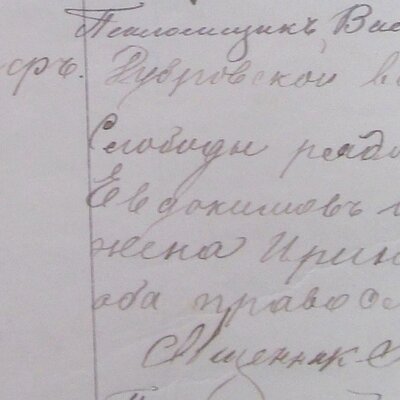 Псаломщикъ Вас
ръ. Дубровской в
Слободы рядо
Евдокимовъ и
жена Ирин
оба правосл
Священник